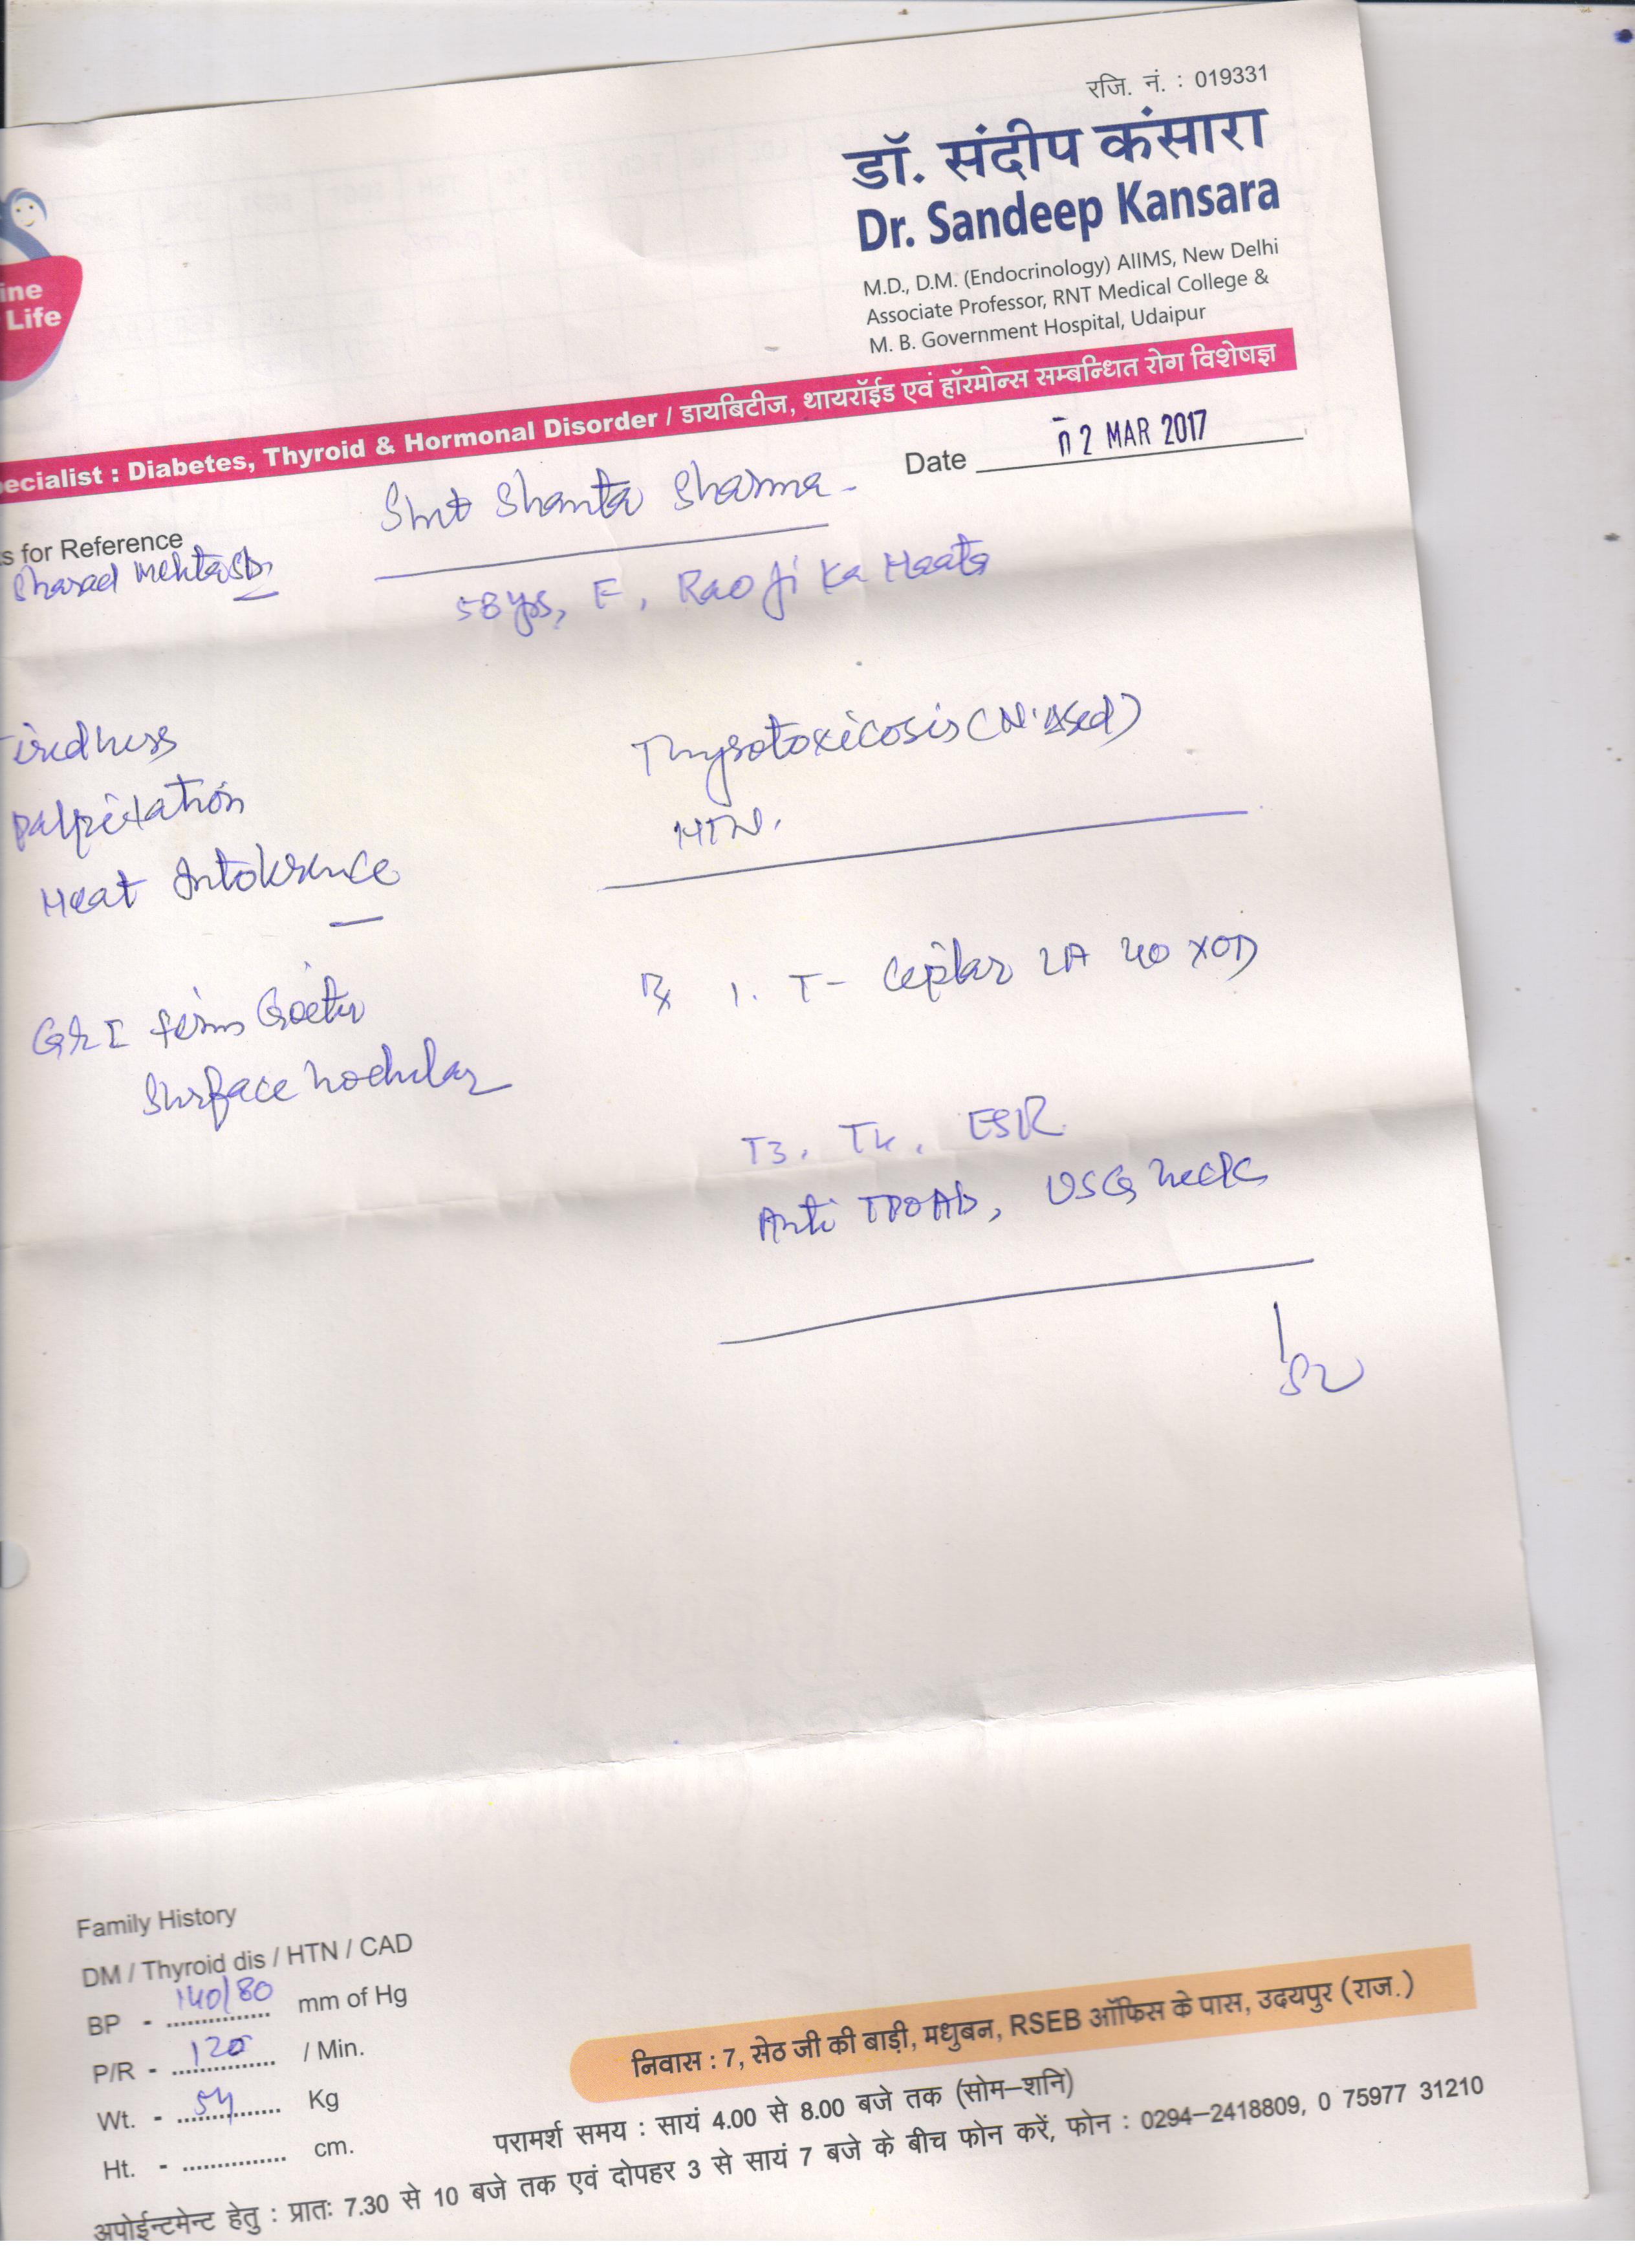 रजि. नं. : 019331
डॉ. संदीप कंसारा
Dr. Sandeep Kansara
M.D., D.M. (Endocrinology) AIIMS, New Delhi
Associate Professor, RNT Medical College &
M. B. Government Hospital, Udaipur
ine
Life
ecialist : Diabetes, Thyroid & Hormonal Disorder / डायबिटीज, थायरॉईड एवं हॉरमोन्स सम्बन्धित रोग विशेषज्ञ
Date 02 MAR 2017
s for Reference
Sharad Mehta
Smt Shanta Sharma
58 yrs, F, Raoji Ka Haata
Tiredness
Palpitation
Heat Intolerence
Gr I firm Goiter
Surface nodular
Thyrotoxicosis
HTN.
Rx 1. T- Ceplar LA 40 X OD
T3, T4, ESR
Anti TPOAb, USG neck
Family History
DM / Thyroid dis / HTN / CAD
BP - 140/80 mm of Hg
P/R - 120 / Min.
Wt. - 54 Kg
Ht. - ............... cm.
निवास : 7, सेठ जी की बाड़ी, मधुबन, RSEB ऑफिस के पास, उदयपुर (राज.)
परामर्श समय : सायं 4.00 से 8.00 बजे तक (सोम–शनि)
अपोईन्टमेन्ट हेतु : प्रातः 7.30 से 10 बजे तक एवं दोपहर 3 से सायं 7 बजे के बीच फोन करें, फोन : 0294–2418809, 0 75977 31210